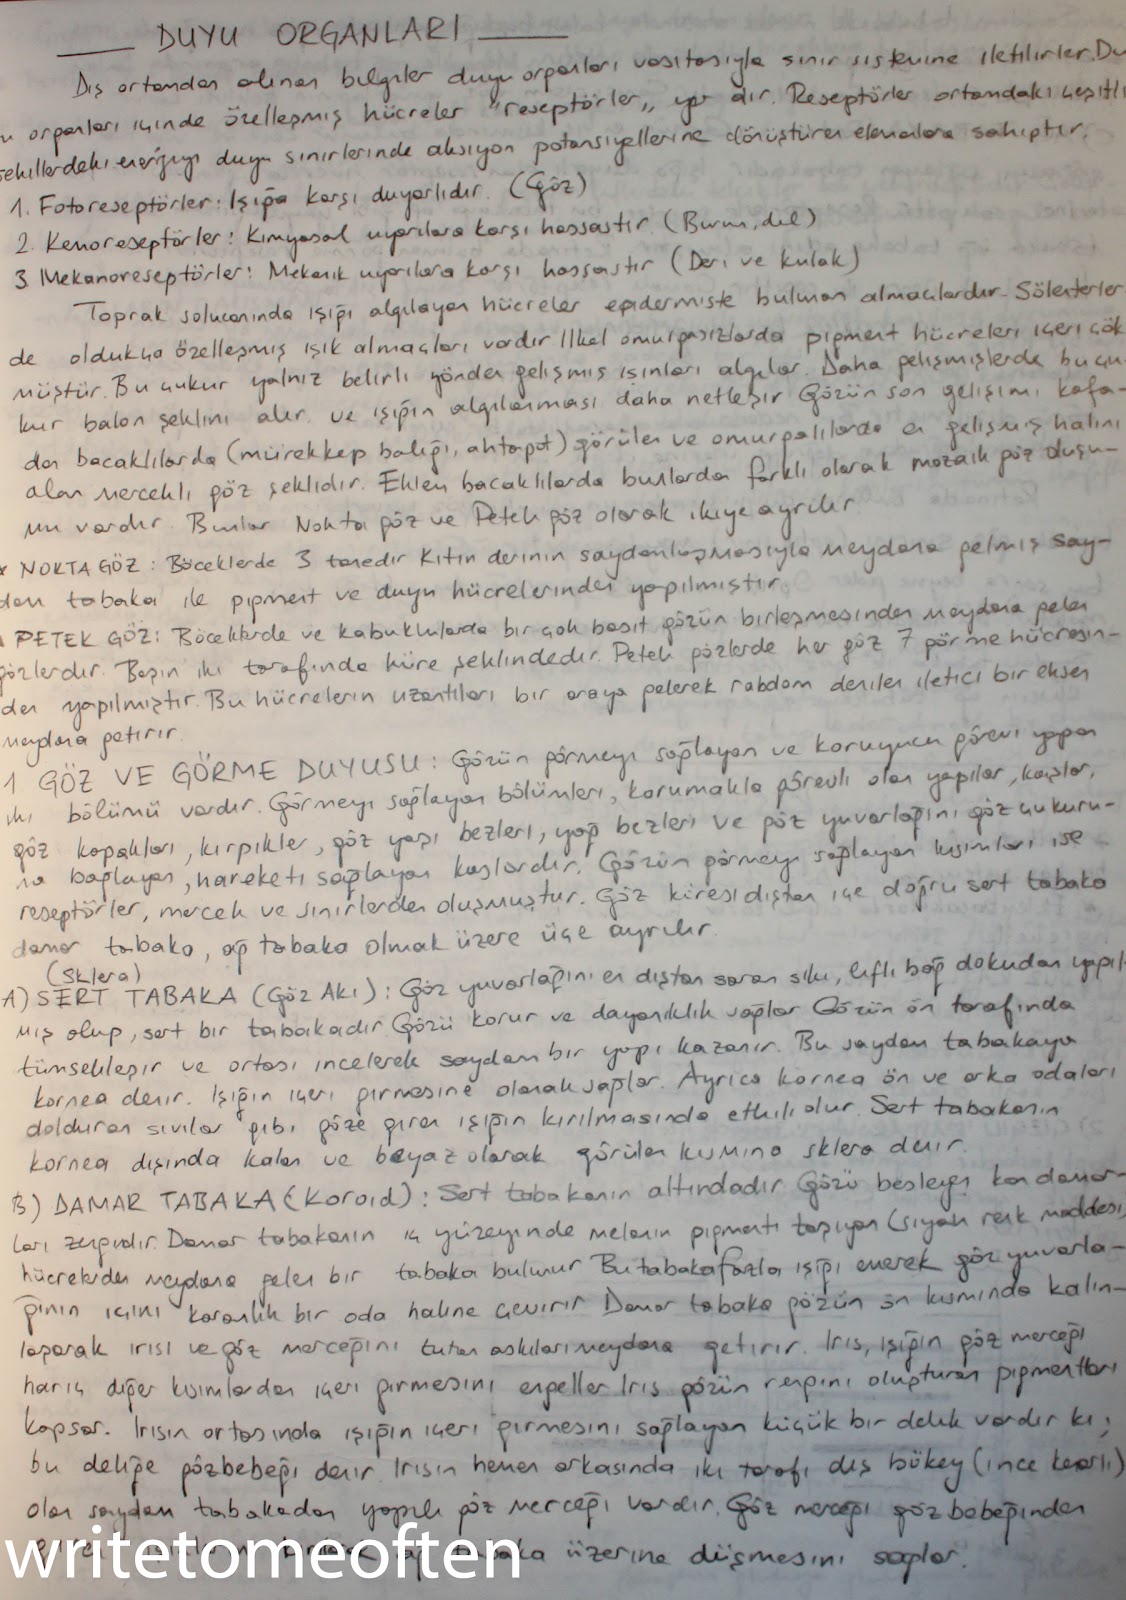 DUYU ORGANLARI
Dış ortamdan alınan bilgiler duyu organları vasıtasıyla sinir sistemine iletilirler. Du
organları içinde özelleşmiş hücreler "reseptörler,, dır. Reseptörler ortamdaki çeşitli
şekillerdeki enerjiyi duyu sinirlerinde aksiyon potansiyellerine dönüştüren elemanlara sahiptir.
1. Fotoreseptörler: Işığa karşı duyarlıdır. (Göz)
2. Kemoreseptörler: Kimyasal uyarılara karşı hassastır. (Burun, dil)
3. Mekanoreseptörler: Mekanik uyarılara karşı hassastır (Deri ve kulak)
Toprak solucanında ışığı algılayan hücreler epidermiste bulunan almaçlardır. Sölenterler
de oldukça özelleşmiş ışık almaçları vardır İlkel omurgasızlarda pigment hücreleri içeri çök
müştür. Bu çukur yalnız belirli yönden gelişmiş ışınları algılar. Daha gelişmişlerde bu çu
kur balon şeklini alır. ve ışığın algılanması daha netleşir Gözün son gelişimi kafa-
dan bacaklılarda (mürekkep balığı, ahtapot) görülen ve omurgalılarda en gelişmiş halini
alan mercekli göz şeklidir. Eklem bacaklılarda bunlardan farklı olarak mozaik göz oluşu-
mu vardır. Bunlar Nokta göz ve Petek göz olarak ikiye ayrılır
* NOKTA GÖZ: Böceklerde 3 tanedir Kitin derinin saydamlaşmasıyla meydana gelmiş say-
dam tabaka ile pigment ve duyu hücrelerinden yapılmıştır.
PETEK GÖZ: Böceklerde ve kabuklularda bir çok basit gözün birleşmesinden meydana gelen
gözlerdir. Başın iki tarafında küre şeklindedir. Petek gözlerde her göz 7 görme hücresin-
den yapılmıştır. Bu hücrelerin uzantıları bir araya gelerek rabdom denilen iletici bir eksen
meydana getirir.
1 GÖZ VE GÖRME DUYUSU: Gözün görmeyi sağlayan ve koruyucu görevi yapan
iki bölümü vardır. Görmeyi sağlayan bölümleri, korumakla görevli olan yapılar, kaşlar,
göz kapakları, kirpikler, göz yaşı bezleri, yağ bezleri ve göz yuvarlağını göz çukuru-
na bağlayan, hareketi sağlayan kaslardır. Gözün görmeyi sağlayan kısımları ise
reseptörler, mercek ve sinirlerden oluşmuştur. Göz küresi dıştan içe doğru sert tabaka
damar tabaka, ağ tabaka olmak üzere üçe ayrılır.
(Sklera)
A) SERT TABAKA (Göz Akı): Göz yuvarlağını en dıştan saran sıkı, lifli bağ dokudan yapıl
mış olup, sert bir tabakadır Gözü korur ve dayanıklık sağlar Gözün ön tarafında
tümsekleşir ve ortası incelerek saydam bir yapı kazanır. Bu saydam tabakaya
kornea denir. Işığın içeri girmesine olanak sağlar. Ayrıca kornea ön ve arka odaları
dolduran sıvılar gibi göze giren ışığın kırılmasında etkili olur. Sert tabakanın
kornea dışında kalan ve beyaz olarak görülen kısmına sklera denir.
B) DAMAR TABAKA (Koroid): Sert tabakanın altındadır Gözü besleyen kan damar-
ları zengindir. Damar tabakanın iç yüzeyinde melanin pigmenti taşıyan (siyah renk maddesi)
hücrelerden meydana gelen bir tabaka bulunur Bu tabaka fazla ışığı emerek göz yuvarla-
ğının içini karanlık bir oda haline çevirir Damar tabaka gözün ön kısmında kalın-
laşarak irisi ve göz merceğini tutan askıları meydana getirir. Iris, ışığın göz merceği
hariç diğer kısımlardan içeri girmesini engeller Iris gözün rengini oluşturan pigmentleri
kapsar. Irisin ortasında ışığın içeri girmesini sağlayan küçük bir delik vardır ki;
bu deliğe gözbebeği denir. Irisin hemen arkasında iki tarafı dış bükey (ince kenarlı)
olan saydam tabakadan yapılı göz merceği vardır. Göz merceği göz bebeğinden
tabaka üzerine düşmesini sağlar.
writetomeoften